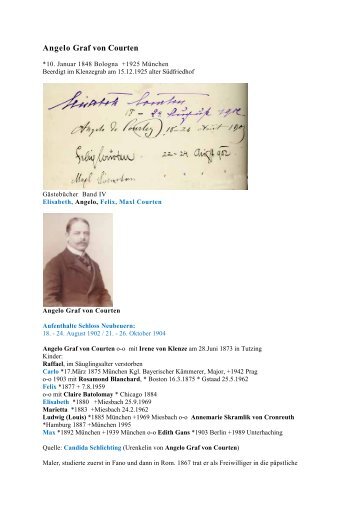 Angelo Graf von Courten
*10. Januar 1848 Bologna +1925 München
Beerdigt im Klenzegrab am 15.12.1925 alter Südfriedhof
Elisabeth Courten
18 - 24 August 1902
Angelo de Courten
Felix Courten 22-24. Aug 902
Maxl Courten
Gästebücher Band IV
Elisabeth, Angelo, Felix, Maxl Courten
Angelo Graf von Courten
Aufenthalte Schloss Neubeuern:
18. - 24. August 1902 / 21. - 26. Oktober 1904
Angelo Graf von Courten o-o mit Irene von Klenze am 28.Juni 1873 in Tutzing
Kinder:
Raffael, im Säuglingsalter verstorben
Carlo *17.März 1875 München Kgl. Bayerischer Kämmerer, Major, +1942 Prag
o-o 1903 mit Rosamond Blanchard, * Boston 16.3.1875 * Gstaad 25.5.1962
Felix *1877 + 7.8.1959
o-o mit Claire Batolomay * Chicago 1884
Elisabeth *1880 +Miesbach 25.9.1969
Marietta *1883 +Miesbach 24.2.1962
Ludwig (Louis) *1885 München +1969 Miesbach o-o Annemarie Skramlik von Cronreuth
*Hamburg 1887 +München 1995
Max *1892 München +1939 München o-o Edith Gans *1903 Berlin +1989 Unterhaching
Quelle: Candida Schlichting (Urenkelin von Angelo Graf von Courten)
Maler, studierte zuerst in Fano und dann in Rom. 1867 trat er als Freiwilliger in die päpstliche